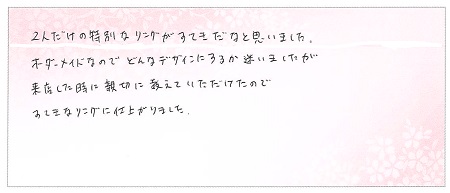 2人だけの特別なリングがすてきだなと思いました。
オーダーメイドなので どんなデザインにするか迷いましたが
来店した時に親切に教えていただけたので
すてきなリングに仕上がりました。